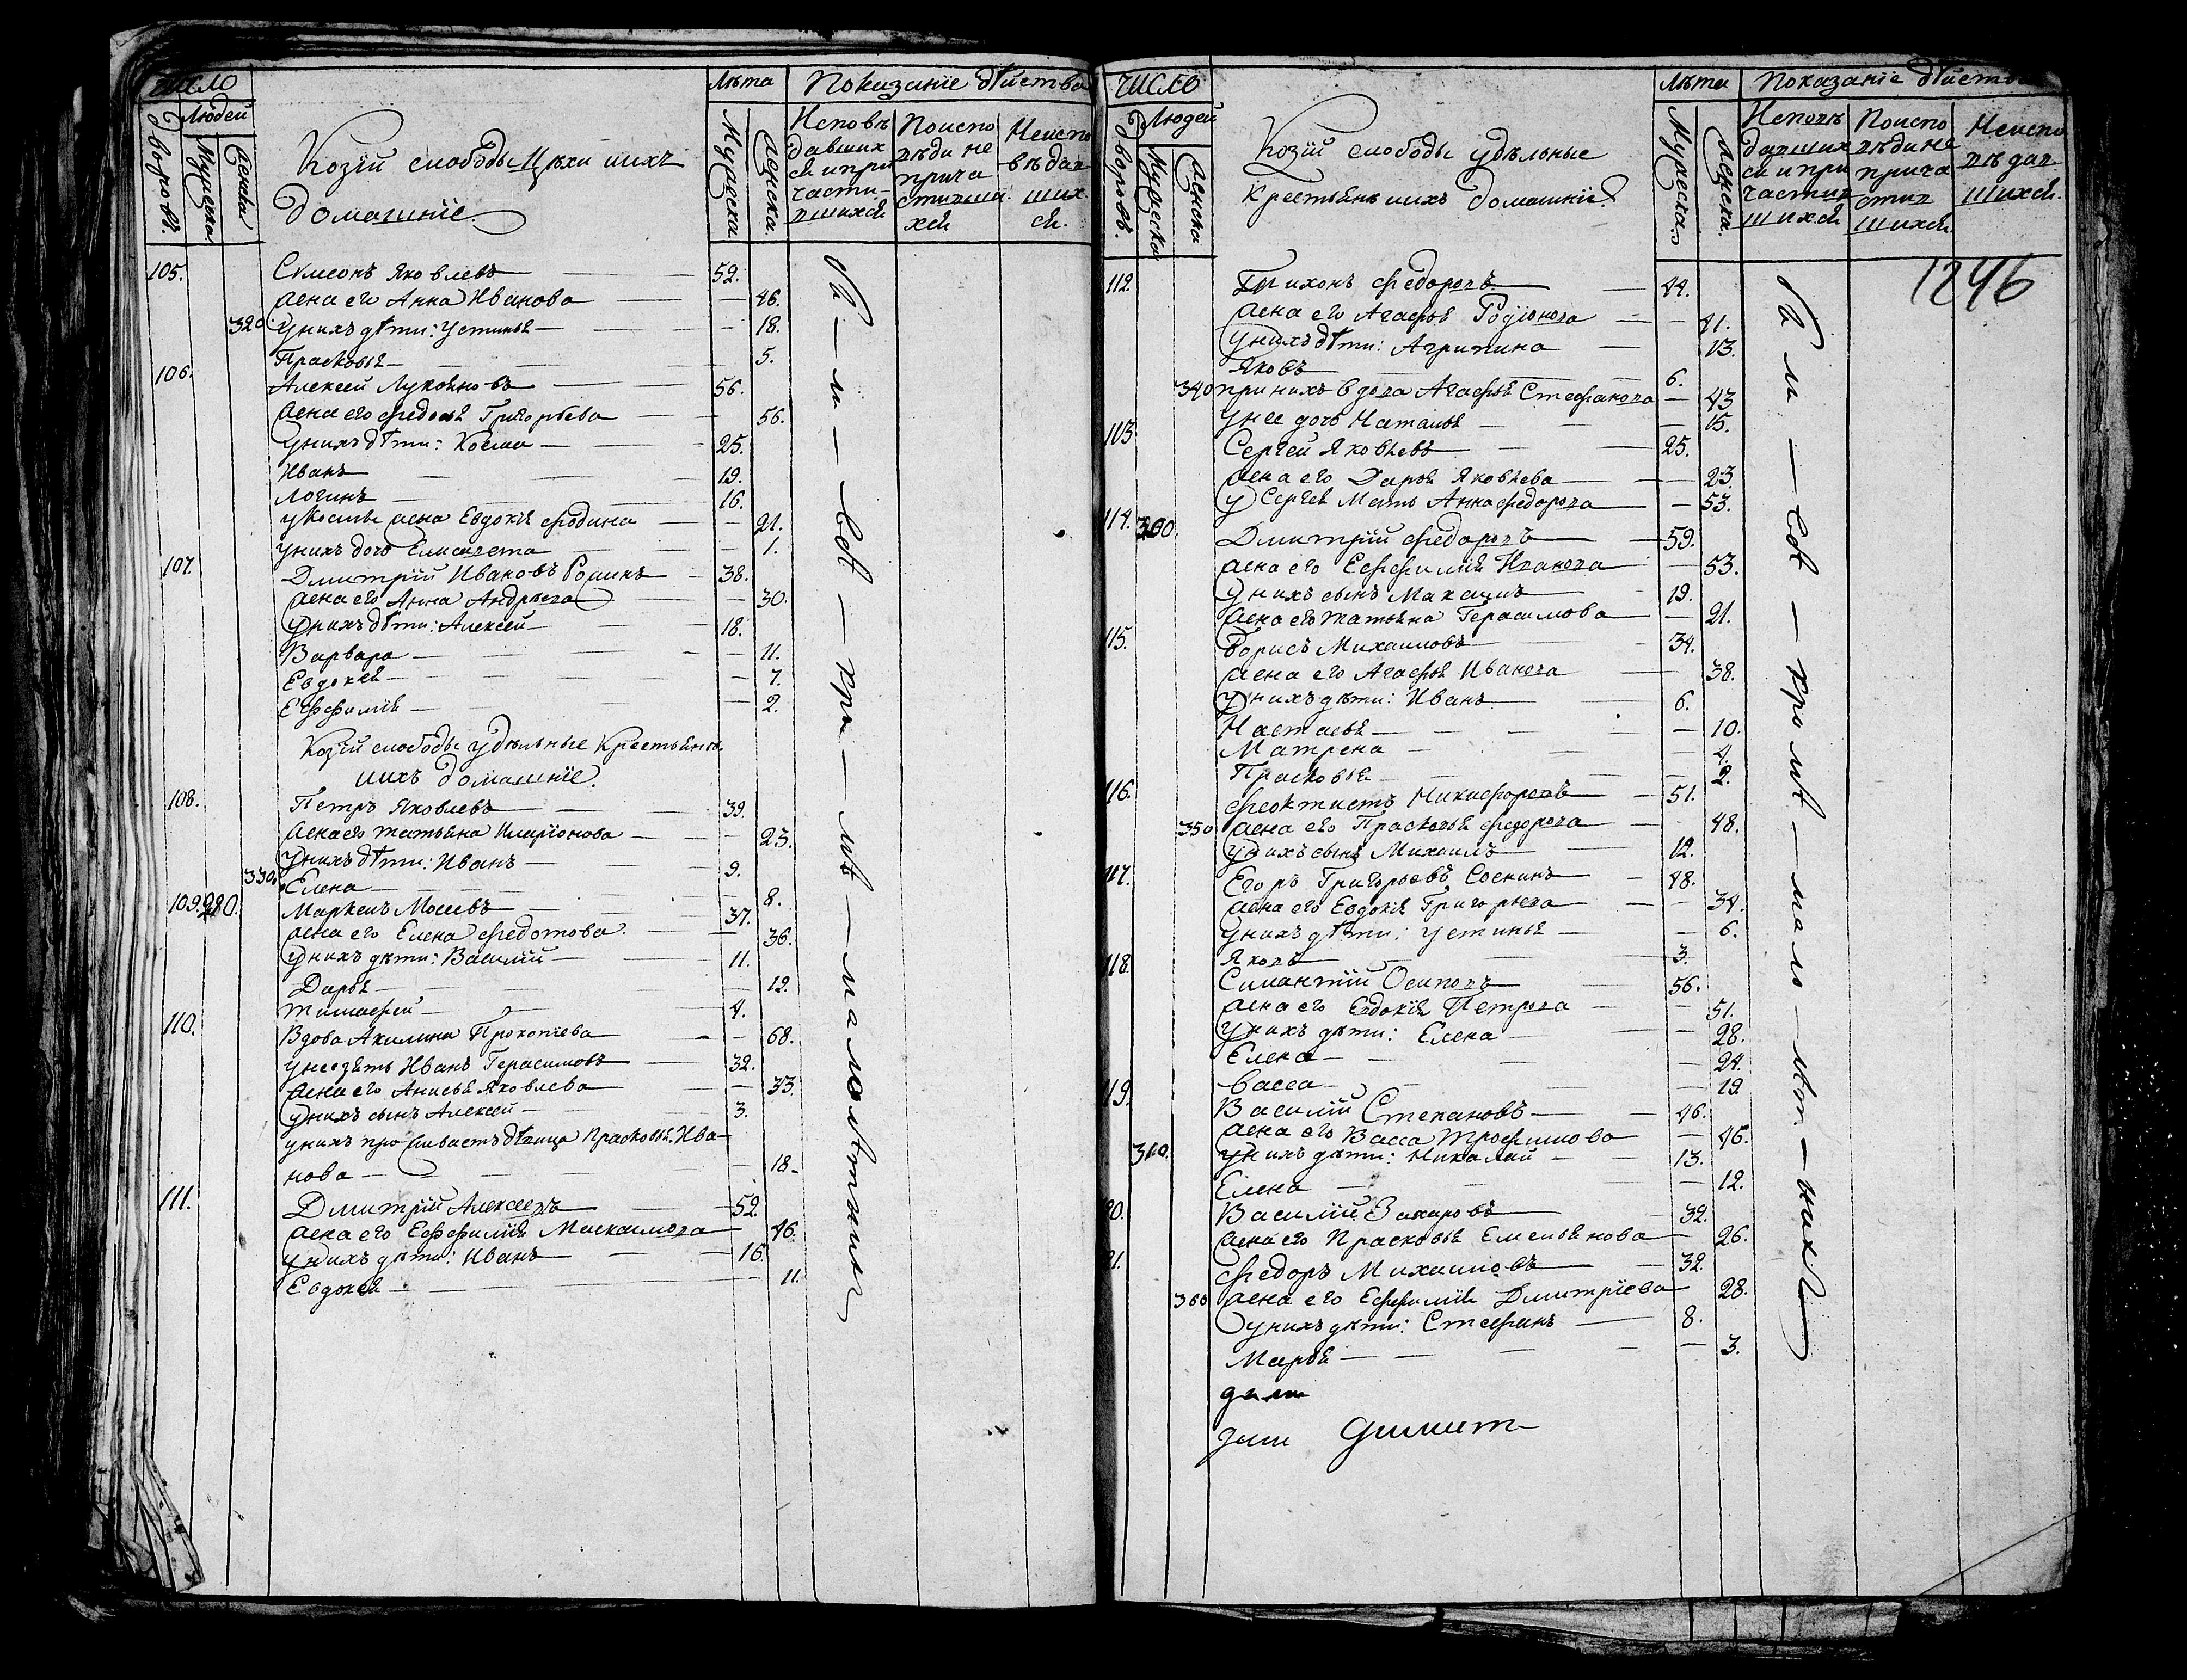 число
Людей
дворовъ.
Мужеска
Женска
Козій слободы Цѣхи ихъ
домашніе.
Лѣта
Мужеска
Женска.
Показаніе дѣйства
Исповѣ
давших
ся и при
части-
вшихся
Поиспо
вѣди не
прича
стивши
хся
Неиспо
вѣдав
ших
ся.
105. Сѵмеонъ Яковлевъ 52.
Жена его Анна Иванова 46.
320 У нихъ дѣти: Устинья 18.
Прасковья 5.
106. Алексей Лукояновъ 56.
Жена его Федосья Григорьева 56.
У нихъ дѣти: Косма 25.
Иванъ 19.
Логинъ 16.
У Космы жена Евдокія Фодина 21.
У нихъ дочь Елисавета 1.
107. Дмитрій Ивановъ 38.
Жена его Анна Андрѣева 30.
У нихъ дѣти: Алексей 18.
Варвара 11.
Евдокея 7.
Ефѳимія 2.
Козій слободы удѣльные Крестьяне
ихъ домашніе.
108. Петръ Яковлевъ 39.
Жена его Татьяна Иларіонова 23.
У нихъ дѣти: Иванъ 9.
330. Елена 8.
109. 280. Маркелъ Мосевъ 37.
Жена его Елена Федотова. 36.
У нихъ дѣти: Василій 11.
Дарья 12.
Тимофей 4.
110. Вдова Акилина Прокопіева 68.
У нее зять Иванъ Герасимовъ 32.
Жена его Анисья Яковлева 33.
У нихъ сынъ Алексей 3.
У нихъ проживаетъ дѣвица Прасковья Ива-
нова 18.
111. Дмитрій Алексеевъ 52.
Жена его Ефѳимія Маскимова 46.
У нихъ дѣти: Иванъ 16.
Евдокея 11.
число
Людей
дворовъ.
Мужеска
Женска
Козій слободы удѣльные
Крестьяне ихъ домашніе
Лѣта
Мужеска
Женска.
Показаніе дѣйства
Исповѣ
давших
ся и при
частив
шихся
Поиспо
вѣди не
прича
стив
шихся
Неиспо
вѣдав
шихся.
1246
112. Тихонъ Федоровъ 44.
Жена его Агафья Родіонова 41.
У нихъ дѣти: Агрипина 13.
Яковъ 6.
340 При нихъ вдова Агафья Стефанова 43
У нее дочь Наталья 15.
113 Сергей Яковьевъ 25.
Жена его Дарья Яковьева 23.
У Сергея Мать Анна Федорова 53.
114. 300. Дмитрій Федоровъ 59.
Жена его Ефѳимія Иванова 53.
У нихъ сынъ Максимъ 19.
Жена его Татьяна Герасимова 21.
115. Борисъ Михаиловъ 34.
Жена его Агафья Иванова 38.
У нихъ дѣти: Иванъ 6.
Настасья 10.
Матрена 4.
Прасковья 2.
116. Феоктистъ Никифоровъ 51.
350 Жена его Прасковья Федорова 48.
У нихъ сынъ Михаилъ 12.
117. Егоръ Григорьевъ Соснинъ 48.
Жена его Евдокія Григорьева 34.
У нихъ дѣти: Устинья 6.
Яковъ 3.
118. Осиповъ 56.
Жена его Евдокія Петрова 51.
У нихъ дѣти: Елена 28.
Елена 24.
Васса 19
119. Василій Степановъ 46.
Жена его Васса Трофимова 46.
310. У нихъ дѣти: Николай 13.
Елена 12.
20. Василій Захаровъ 32.
Жена его Прасковья Емельянова 26.
21. Федоръ Михаиловъ 32.
360 Жена его Ефѳимія Дмитріева 28.
У нихъ дѣти: Стефанъ 8.
Марья 3.